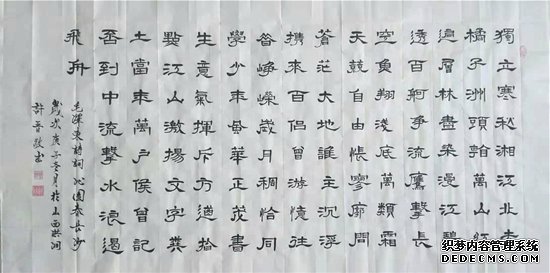 獨立寒秋湘江北去
橘子洲頭看萬山紅
遍層林盡染漫江碧
透百舸爭流鷹擊長
空魚翔淺底萬類霜
天競自由悵寥廓問
蒼茫大地誰主沉浮
攜來百侶曾游憶往
昔崢嶸歲月稠恰同
學少年風華正茂書
生意氣揮斥方遒指
點江山激揚文字糞
土當年萬戶侯曾記
否到中流擊水浪遏
飛舟
毛澤東詩詞沁園春長沙
歲次庚子冬月於山西洪洞
許晉書
织梦内容管理系统
DEDECMS.COM